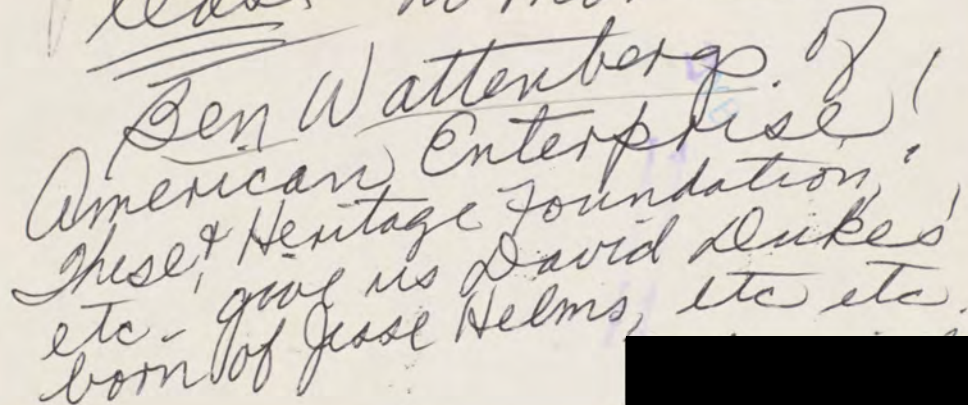 Ben Wattenbergs. of
American Enterprise!
These & Heritage Foundation,!
etc - give us David Dukes!
born of Jesse Helms, etc etc.